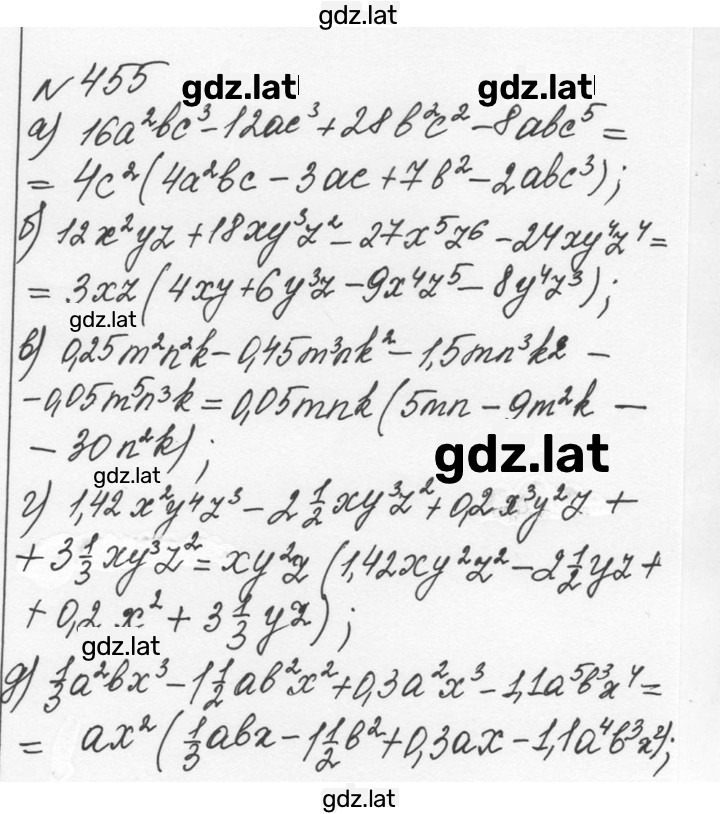 gdz.lat
№ 455 gdz.lat gdz.lat
а) 16a²bc³ - 12ac³ + 28b²c² - 8abc⁵ =
= 4c²(4a²bc - 3ac + 7b² - 2abc³);
б) 12x²yz + 18xy³z² - 27x⁵z⁶ - 24xy⁴z⁴ =
= 3xz(4xy + 6y³z - 9x⁴z⁵ - 8y⁴z³);
gdz.lat
в) 0,25m²n²k - 0,45m³nk² - 1,5mn³k2 -
- 0,05m⁵n³k = 0,05mnk(5mn - 9m²k -
- 30n²k); gdz.lat
gdz.lat
г) 1,42x²y⁴z³ - 2 1/2 xy³z² + 0,2x³y²z +
+ 3 1/3 xy³z² = xy²z (1,42xy²z² - 2 1/2 yz +
+ 0,2x² + 3 1/3 yz);
gdz.lat
д) 1/3 a²bx³ - 1 1/2 ab²x² + 0,3a²x³ - 1,1a⁵b³x⁴ =
= ax²(1/3 abx - 1 1/2 b² + 0,3ax - 1,1a⁴b³x²);
gdz.lat